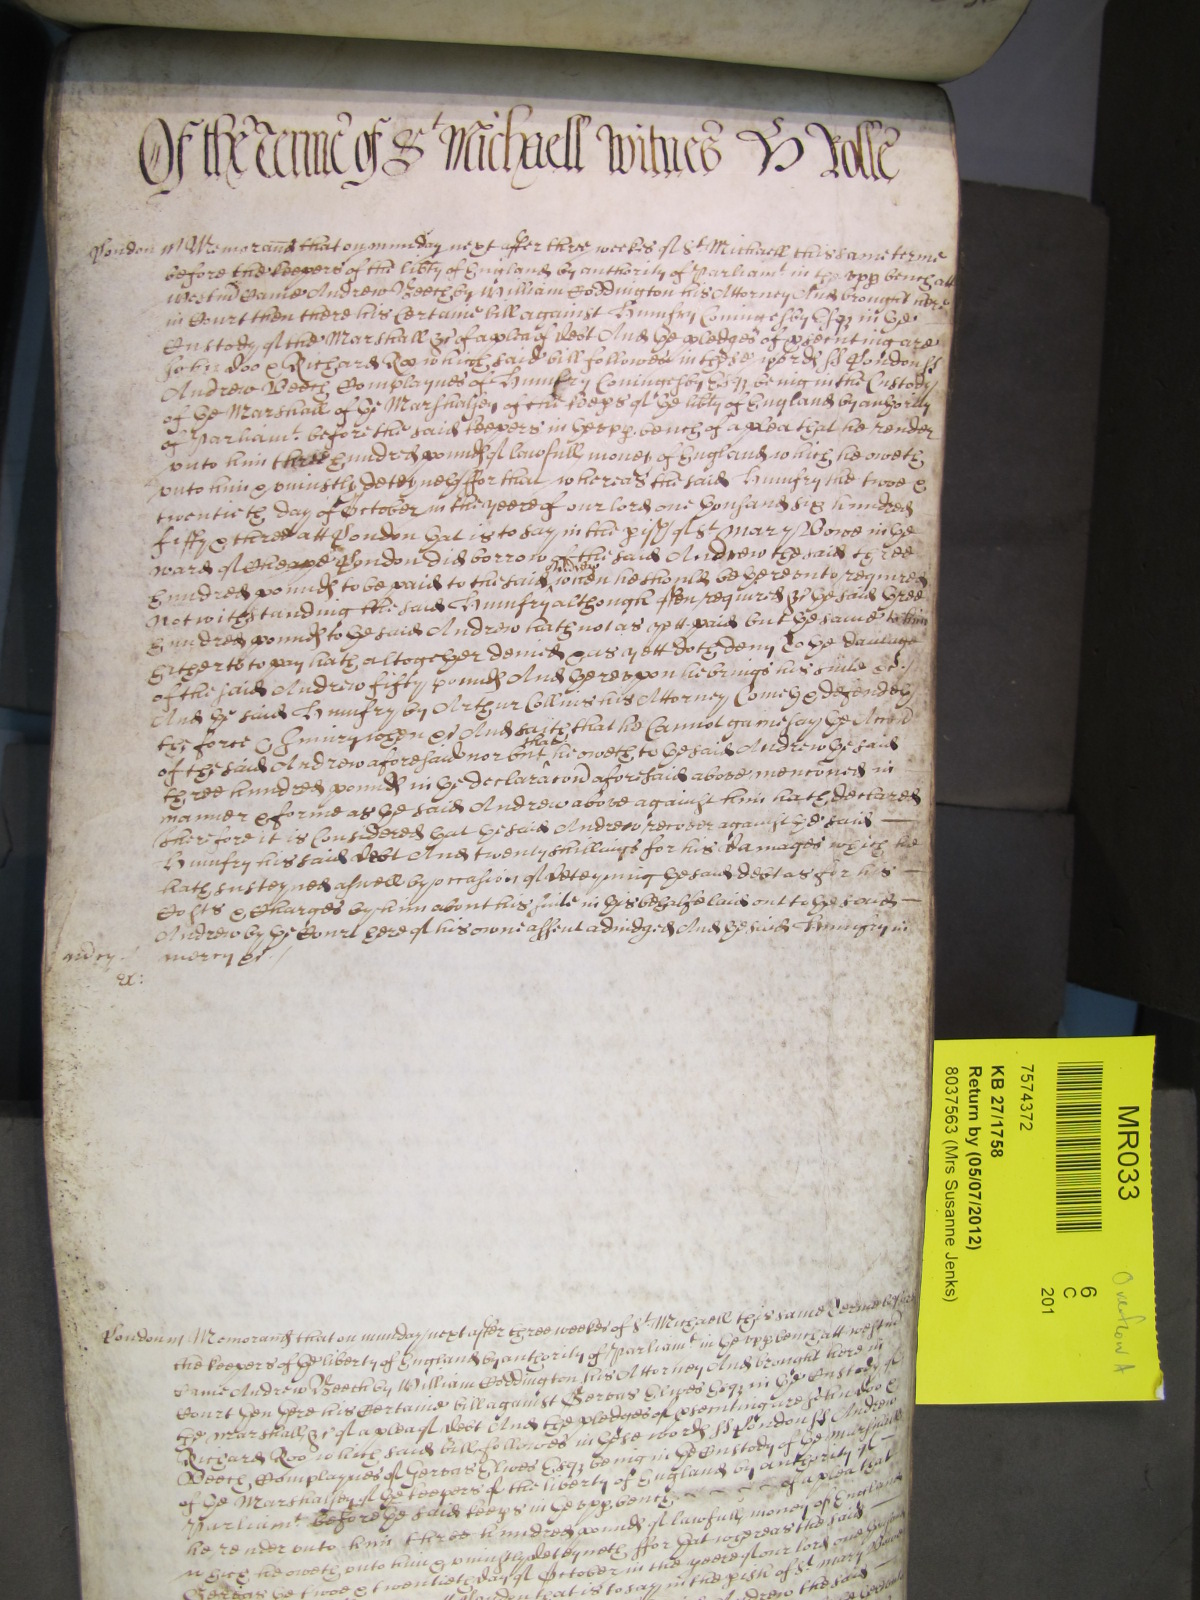 Of the Terme of St Michaell Witnes H Rolle
London ss Memorand that on munday next after three weekes of St Michaell this same terme
before the keepers of the libty of England by authority of Parliamt in the upp bench att
Westmr Came Andrew Beech by William Coddington his Attorney And brought here
in Court then there his Certaine bill against Humfry Coningesby Esqr in the
Custody of the Marshall &c of a plea of debt And the pledges of psecuting are
John Doo & Richard Roo which said bill followes in these words ss London ss
Andrew Beech Complaynes of Humfry Coningesby Esqr being in the Custody
of the Marshall of the Marshalsey of the keeps of the libty of England by authority
of Parliamt before the said keepers in the upp bench of a plea that he render
unto him three hundred pounds of lawfull money of England which he oweth
unto him & uniustly deteyneth ffor that whereas the said Humfry the twoe &
twentieth day of October in the yeere of our lord one thousand six hundred
fifty & three att London that is to say in the pish of St Mary Bowe in the
ward of Cheape London did borrow of the said Andrew the said three
hundred pounds to be paid to the said Andrew when he should be thereunto required
Notwithstanding the said Humfry although often required &c the said three
hundred pounds to the said Andrew hath not as yett paid but the same to him
hitherto to pay hath altogether denied & as yett doth deny To the damage
of the said Andrew fifty pounds And thereupon he brings his suite &c
And the said Humfry by Arthur Collins his Attorney Cometh & defendeth
the force & Iniury when &c And saith that he Cannot gainesay the Accon
of the said Andrew aforesaid nor but that he oweth to the said Andrew the said
three hundred pounds in the declaracon aforesaid above menconed in
manner & forme as the said Andrew above against him hath declared
Therefore it is Considered that the said Andrew recover against the said
Humfry his said debt And twenty shillings for his damages which he
hath susteyned aswell by occasion of deteyning the said debt as for his
Costs & Charges by him about his suite in this behalfe laid out to the said
Andrew by the Court here of his owne assent adiudged And the said Humfry in
mercy &c
mercy
London ss Memorand that on munday next after three weekes of St Michaell this same Terme before
the keepers of the liberty of England by authority of Parliamt in the upp bench att Westmr
Came Andrew Beech by William Coddington his Attorney And brought here in
Court then there his Certaine bill against Gervas Elwes Esqr in the Custody of
the Marshall &c of a plea of debt And the pledges of psecuting are John Doo &
Richard Roo which said bill followes in these words ss London ss Andrew
Beech Complaynes of Gervas Elwes Esqr being in the Custody of the Marshall
of the Marshalsey of the keepers of the liberty of England by authority of
Parliamt before the said keeps in the upp bench of a plea that
he render unto him three hundred pounds of lawfull money of England
which he oweth unto him & uniustly deteyneth ffor that whereas the said
Gervas the twoe & twentieth day of October in the yeere of our lord one thousand
London that is to say in the pish of St Mary Bowe
Andrew the said
MR033
7574372
KB 27/1758
Return by (05/07/2012)
8037563 (Mrs Susanne Jenks)
6
C
201
Overflow A